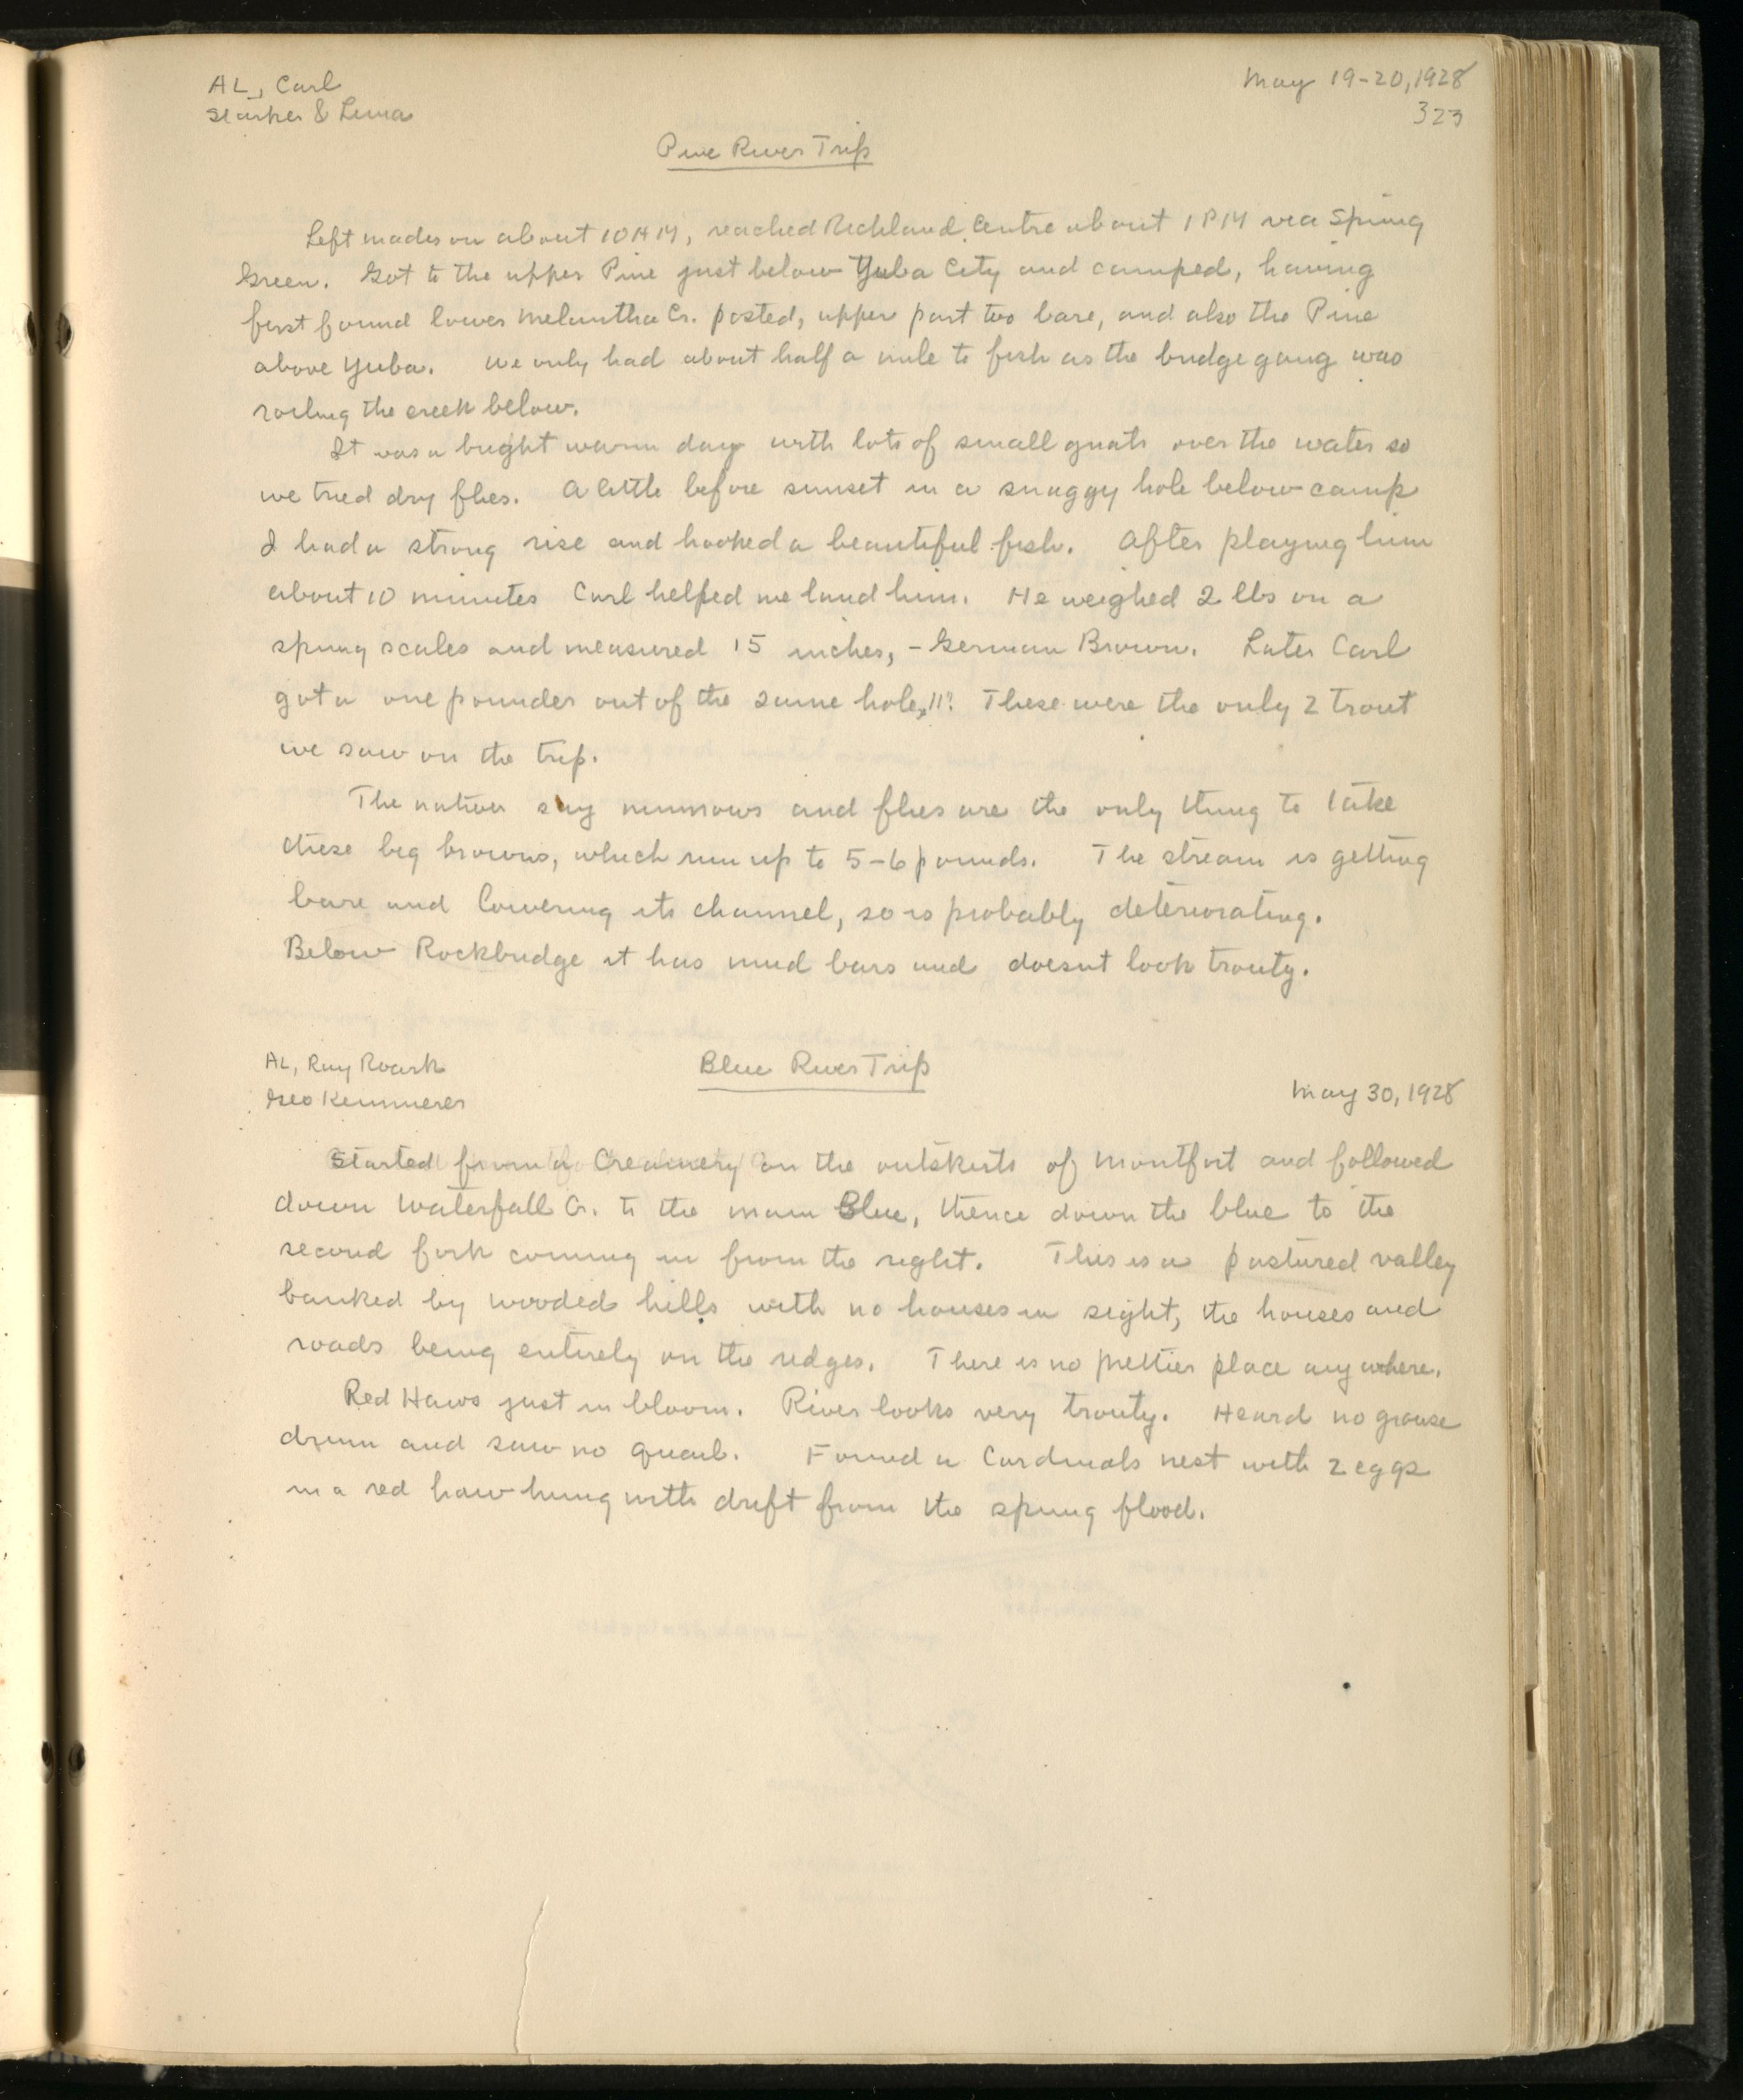 AL, Carl
Starker & Luna
May 19-20, 1928
323
Pine River Trip
Left Madison about 10 AM, reached Richland Centre about 1 PM via Spring
Green. Got to the upper Pine just below Yuba City and camped, having
first found lower Melantha Cr. posted, upper part too bare, and also the Pine
above Yuba. We only had about half a mile to fish as the bridge gang was
roiling the creek below.
It was a bright warm day with lots of small gnats over the water so
we tried dry flies. A little before sunset in a snaggy hole below camp
I had a strong rise and hooked a beautiful fish. After playing him
about 10 minutes Carl helped me land him. He weighed 2 lbs on a
spring scales and measured 15 inches, - German Brown. Later Carl
got a one pounder out of the same hole, 11". These were the only 2 trout
we saw on the trip.
The natives say minnows and flies are the only thing to take
these big browns, which run up to 5-6 pounds. The stream is getting
bare and lowering its channel, so is probably deteriorating.
Below Rockbridge it has mud bars and doesnt look trouty.
AL, Ray Roark
Geo Kemmerer
Blue River Trip
May 30, 1928
Started from a Creamery on the outskirts of Montfort and followed
down Waterfall Cr. to the main Blue, thence down the blue to the
second fork coming in from the right. This is a pastured valley
banked by wooded hills with no houses in sight, the houses and
roads being entirely on the ridges. There is no prettier place anywhere.
Red Haws just in bloom. River looks very trouty. Heard no grouse
drum and saw no quail. Found a Cardinals nest with 2 eggs
in a red haw hung with drift from the spring flood.